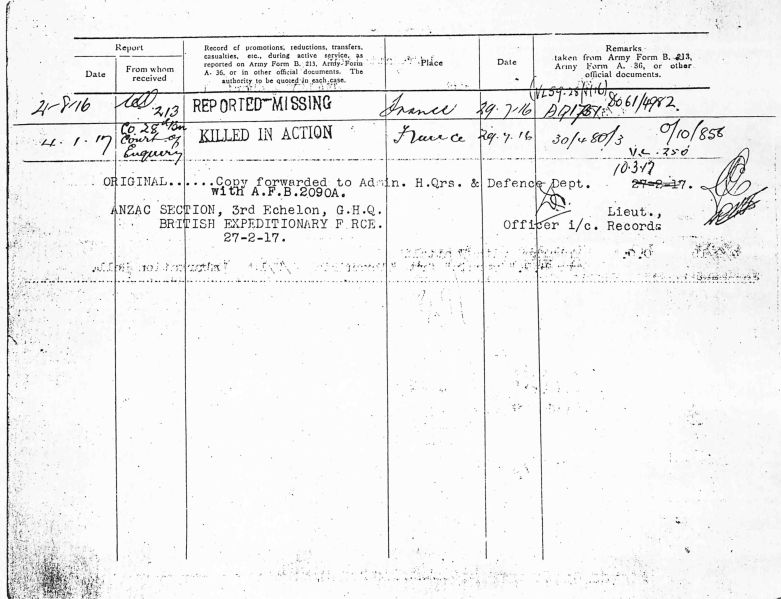 Report
Date
From whom
received
Record of promotions, reductions, transfers,
casualties, etc., during active service, as
reported on Army Form B. 213, Army Form
A. 36, or in other official documents. The
authority to be quoted in each case.
Place
Date
Remarks
taken from Army Form B. 213,
Army Form A. 36, or other
official documents.
21-8-16
213
REPORTED MISSING
France
29-7-16
8061/4982.
4.1.17
Co. 28th Bn
Court of
Enquiry
KILLED IN ACTION
France
29.7.16
30/480/3
0/10/856
V.L. 250
10.3.17
ORIGINAL......Copy forwarded to Admin. H.Qrs. & Defence Dept. 27-2-17.
with A.F.B.2090A.
ANZAC SECTION, 3rd Echelon, G.H.Q. Lieut.,
BRITISH EXPEDITIONARY F RCE. Officer i/c. Records
27-2-17.